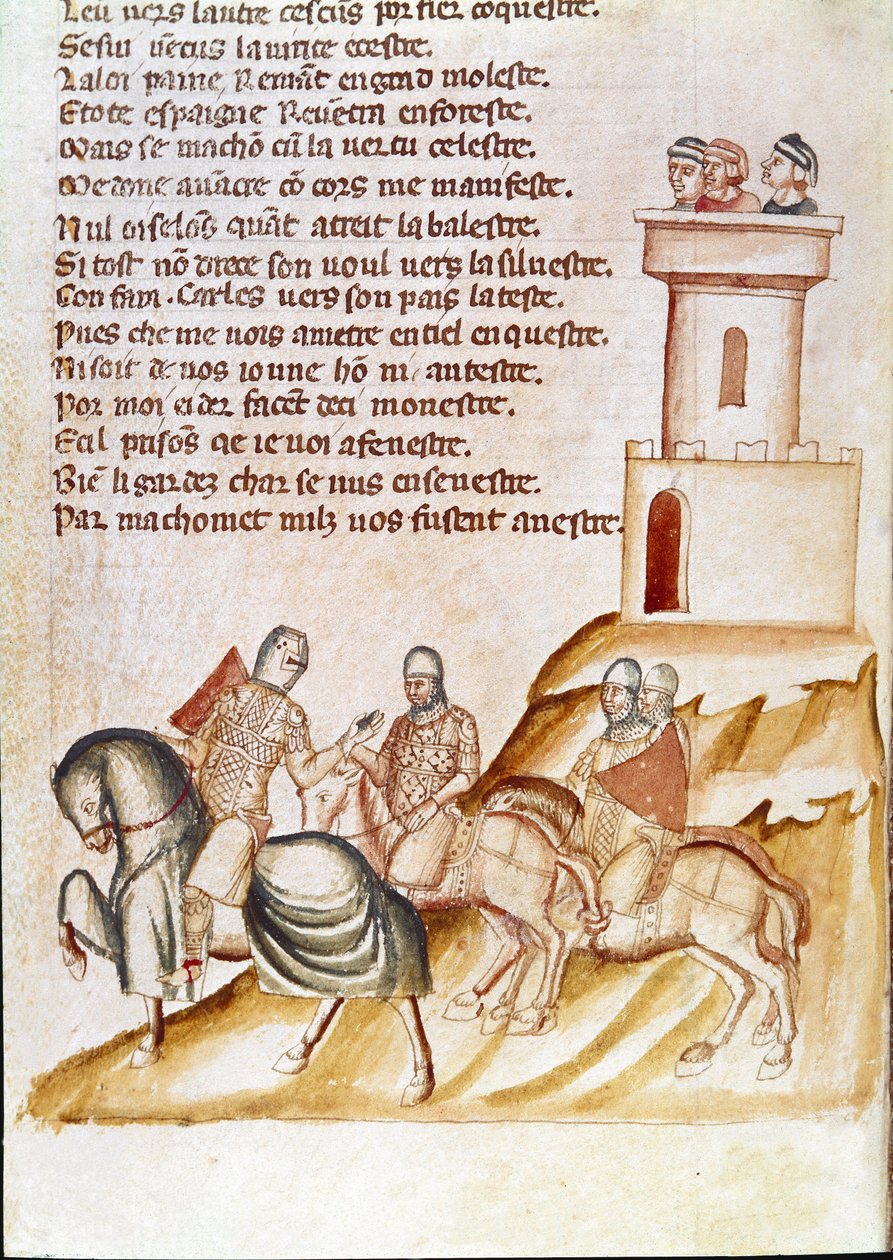 uers lautre cescũs por fier cõquestre.
Se sui uẽcus la uirite ecestre.
La loi paine Remãt en grãd moleste.
E tote espaigne Reuẽtra en foreste.
Mais se machõ cũ la uertu celestre.
Me done auãcre cõ cors me manifeste.
Nul oiselõs quãt atreit la balestre.
Si tost nõ drece son uoul uers la siluestre.
Con fara . Carles uers son pais la teste.
Pues che me uois ametre en tiel enquestre.
Ni soit de uos ioune hõ ni antestre.
Por moi eider facẽt deci monestre.
E cil prisõs qe ie uoi a fenestre.
Biẽ li gardez char se nus enseuestre.
Par machomet milz uos fusent anestre.